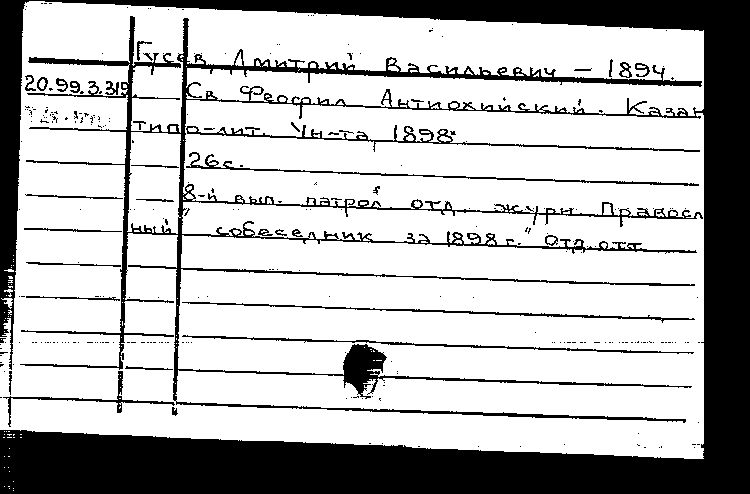 Гусев, Дмитрий Васильевич – 1894.
20.99.3.319 Св Феофил Антиохийский. Казан
типо-лит. Ун-та, 1898.
26с.
8-й вып. патрол отд. журн. Правосл
ный собеседник за 1898 г." Отд. отт.